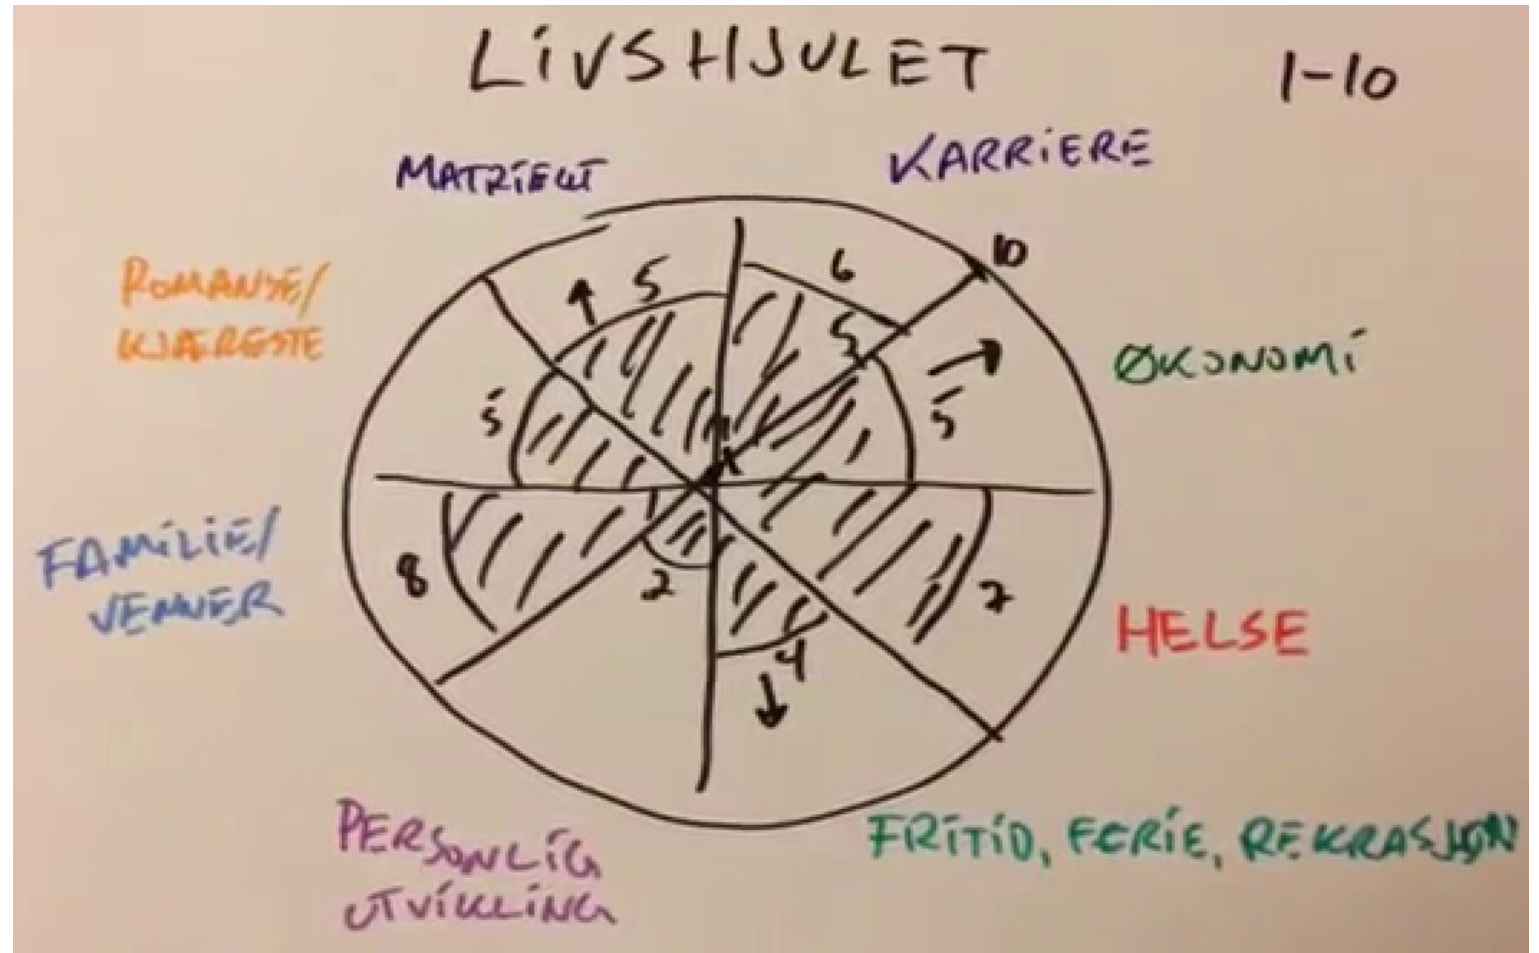 LIVSHJULET
1-10
MATRIELT
KARRIERE
ROMANSE/
KJÆRESTE
ØKONOMI
10
6
5
5
5
5
1
FAMILIE/
VENNER
8
2
4
7
HELSE
PERSONLIG
UTVIKLING
FRITID, FERIE, REKRASJON